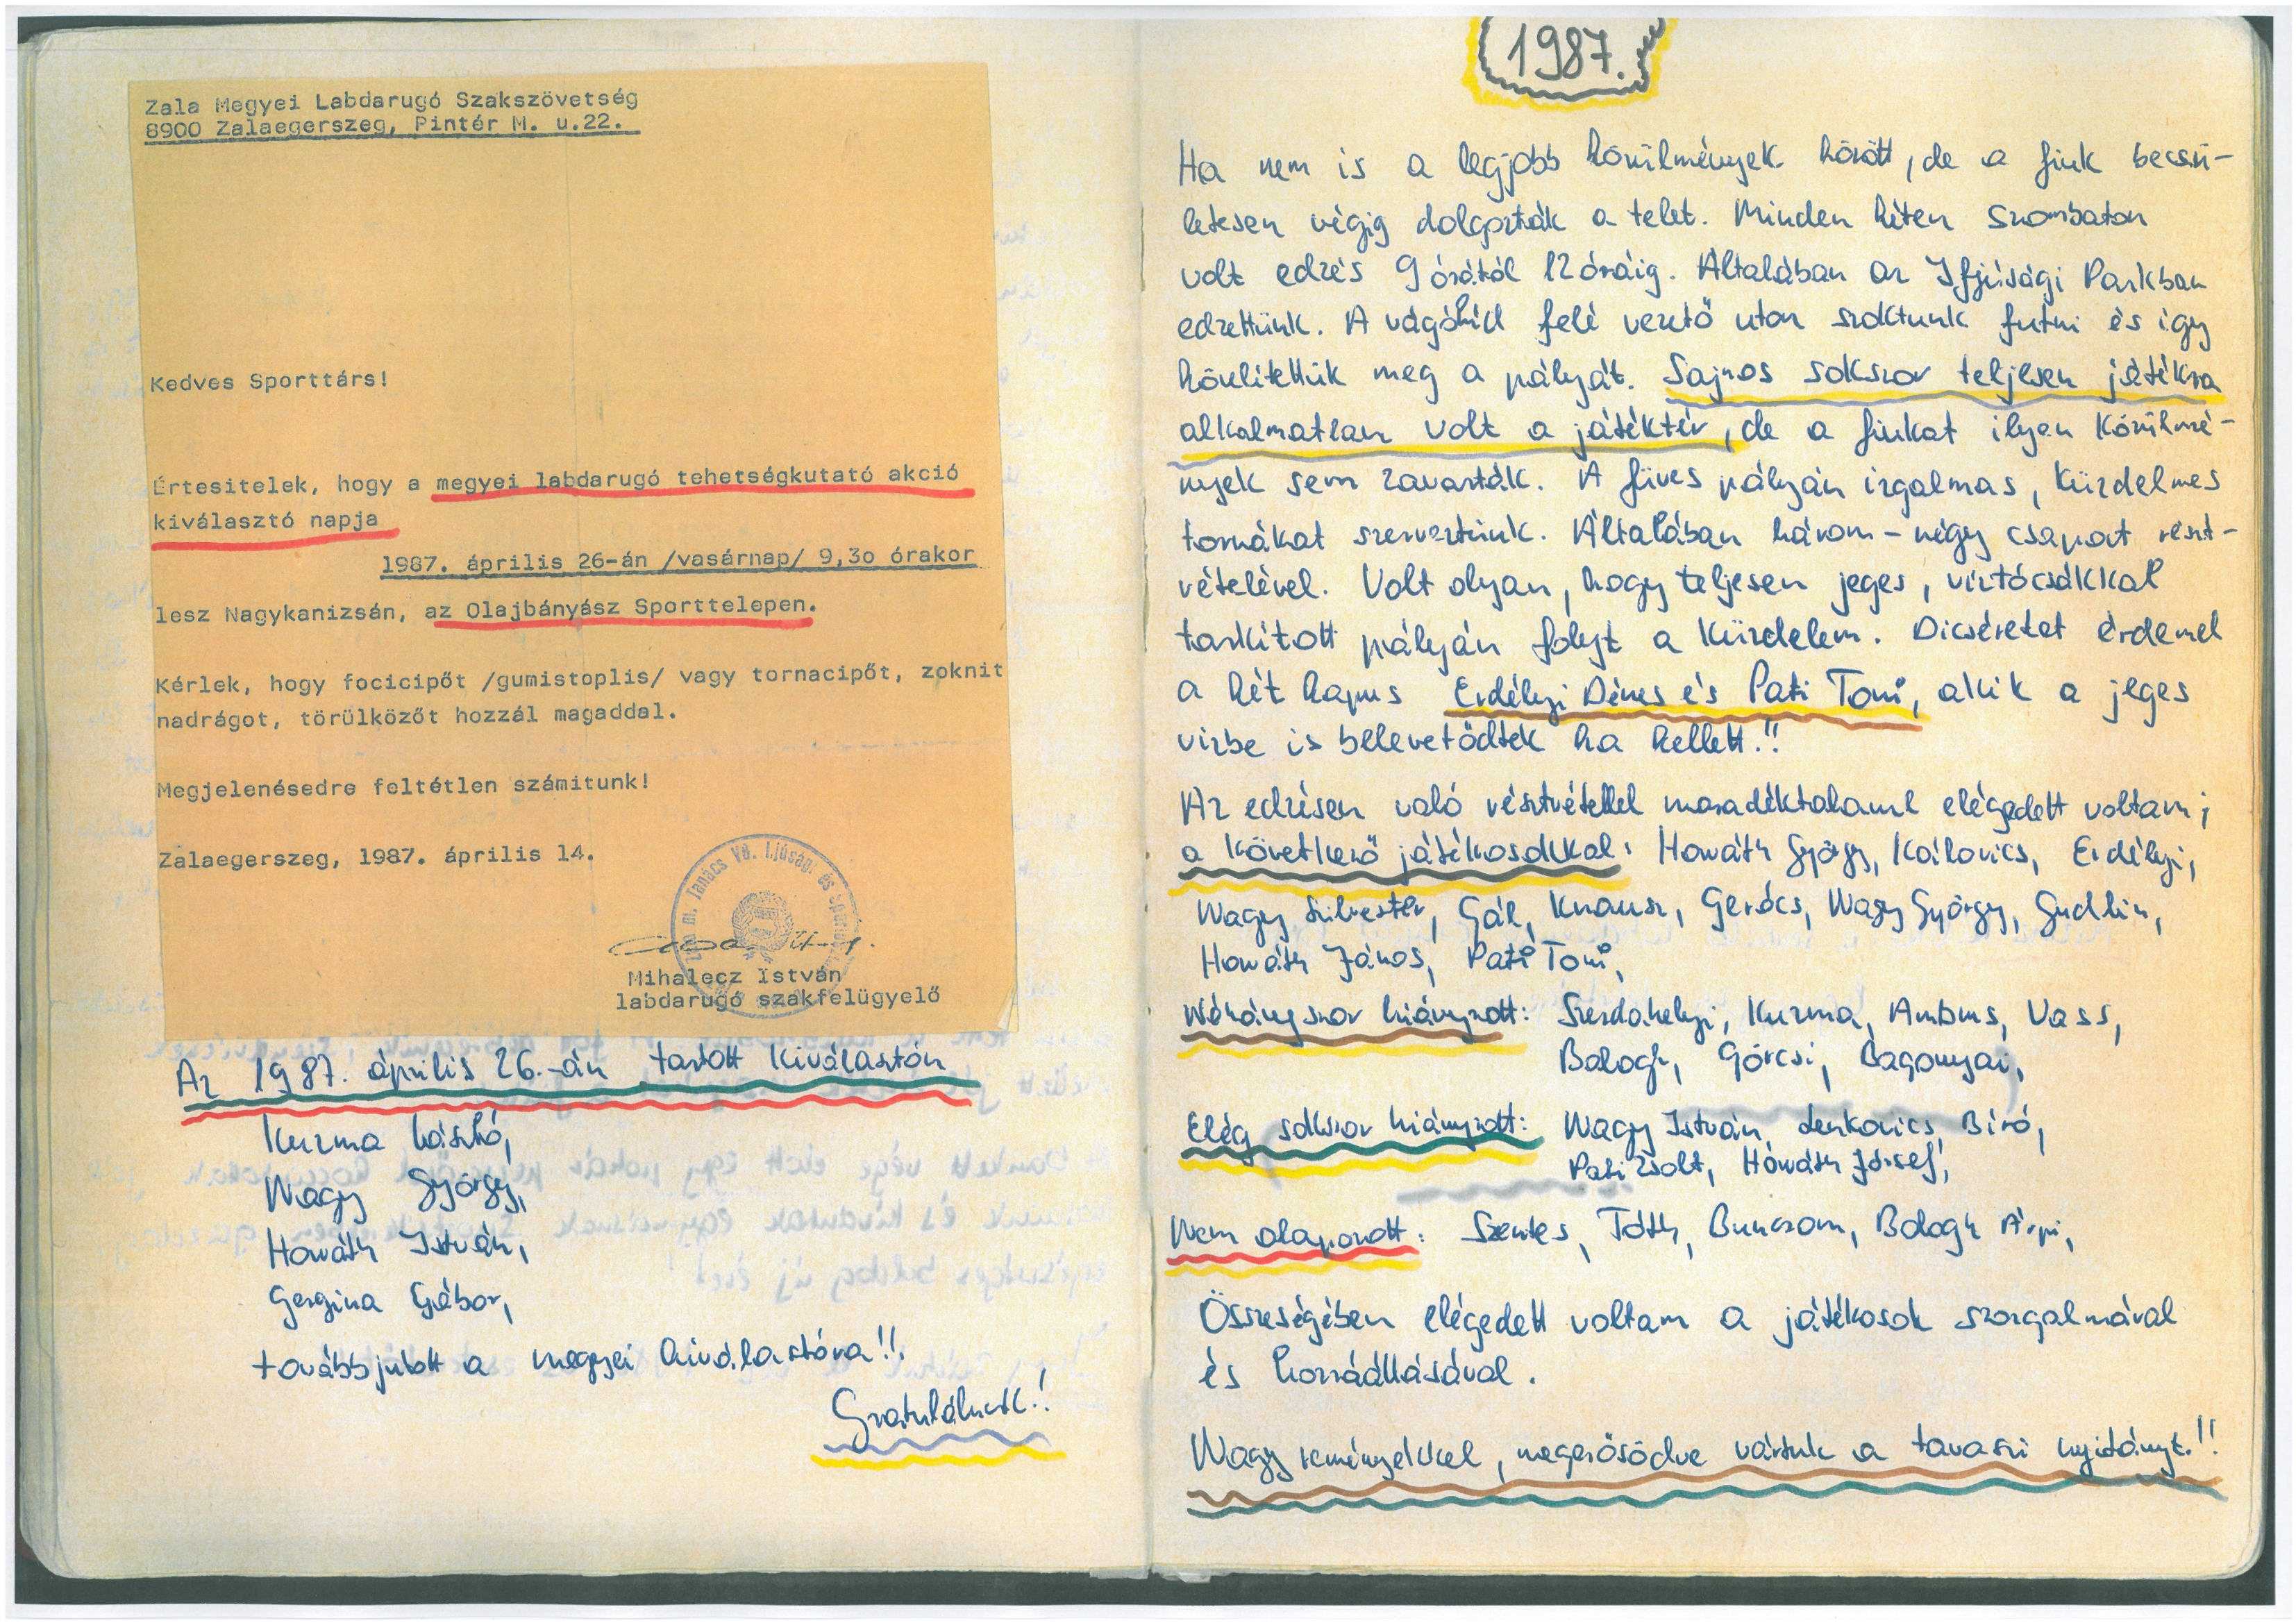 Zala Megyei Labdarugó Szakszövetség
8900 Zalaegerszeg, Pintér M. u.22.
Kedves Sporttárs!
Értesitelek, hogy a megyei labdarugó tehetségkutató akció
kiválasztó napja
1987. április 26-án /vasárnap/ 9,3o órakor
lesz Nagykanizsán, az Olajbányász Sporttelepen.
Kérlek, hogy focicipőt /gumistoplis/ vagy tornacipőt, zoknit
nadrágot, törülközőt hozzál magaddal.
Megjelenésedre feltétlen számitunk!
Zalaegerszeg, 1987. április 14.
Mihalecz István
labdarugó szakfelügyelő
Az 1987. április 26.-án tartott kiválasztón
Kuzma László,
Nagy György,
Horváth István,
Gergina Gábor,
továbbjutott a megyei kiválasztóra!!
Gratulálunk!!
1987.
Ha nem is a legjobb körülmények között, de a fiuk becsü-
letesen végig dolgozták a telet. Minden héten szombaton
volt edzés 9 órától 12 óráig. Általában az Ifjúsági Parkban
edzettünk. A vágóhíd felé vezető uton szoktunk futni és igy
közelitettük meg a pályát. Sajnos sokszor teljesen játékra
alkalmatlan volt a játéktér, de a fiukat ilyen körülmé-
nyek sem zavarták. A füves pályán izgalmas, küzdelmes
tornákat szerveztünk. Általában három - négy csapat részt-
vételével. Volt olyan, hogy teljesen jeges, víztócsákkal
tarkított pályán folyt a küzdelem. Dicséretet érdemel
a két kapus Erdélyi Dénes és Pati Toni, akik a jeges
vizbe is belevetődtek ha kellett!!
Az edzésen való résztvétellel maradéktalanul elégedett voltam;
a következő játékosokkal: Horváth György, Kálovics, Erdélyi,
Nagy Szilveszter, Gál, Knausz, Gerócs, Nagy György, Gudlin,
Horváth János, Pati Toni,
Néhányszor hiányzott: Szerdahelyi, Kuzma, Ambrus, Vass,
Balogh, Görcsi, Bagonyai,
Elég sokszor hiányzott: Nagy István, Lenkovics, Bíró,
Pati Zsolt, Horváth József,
Nem alapozott: Szentes, Tóth, Buncsom, Balogh Árpi,
Összeségében elégedett voltam a játékosok szorgalmával
és hozzáállásával.
Nagy reményekkel, megerősödve vártuk a tavaszi nyitányt!!